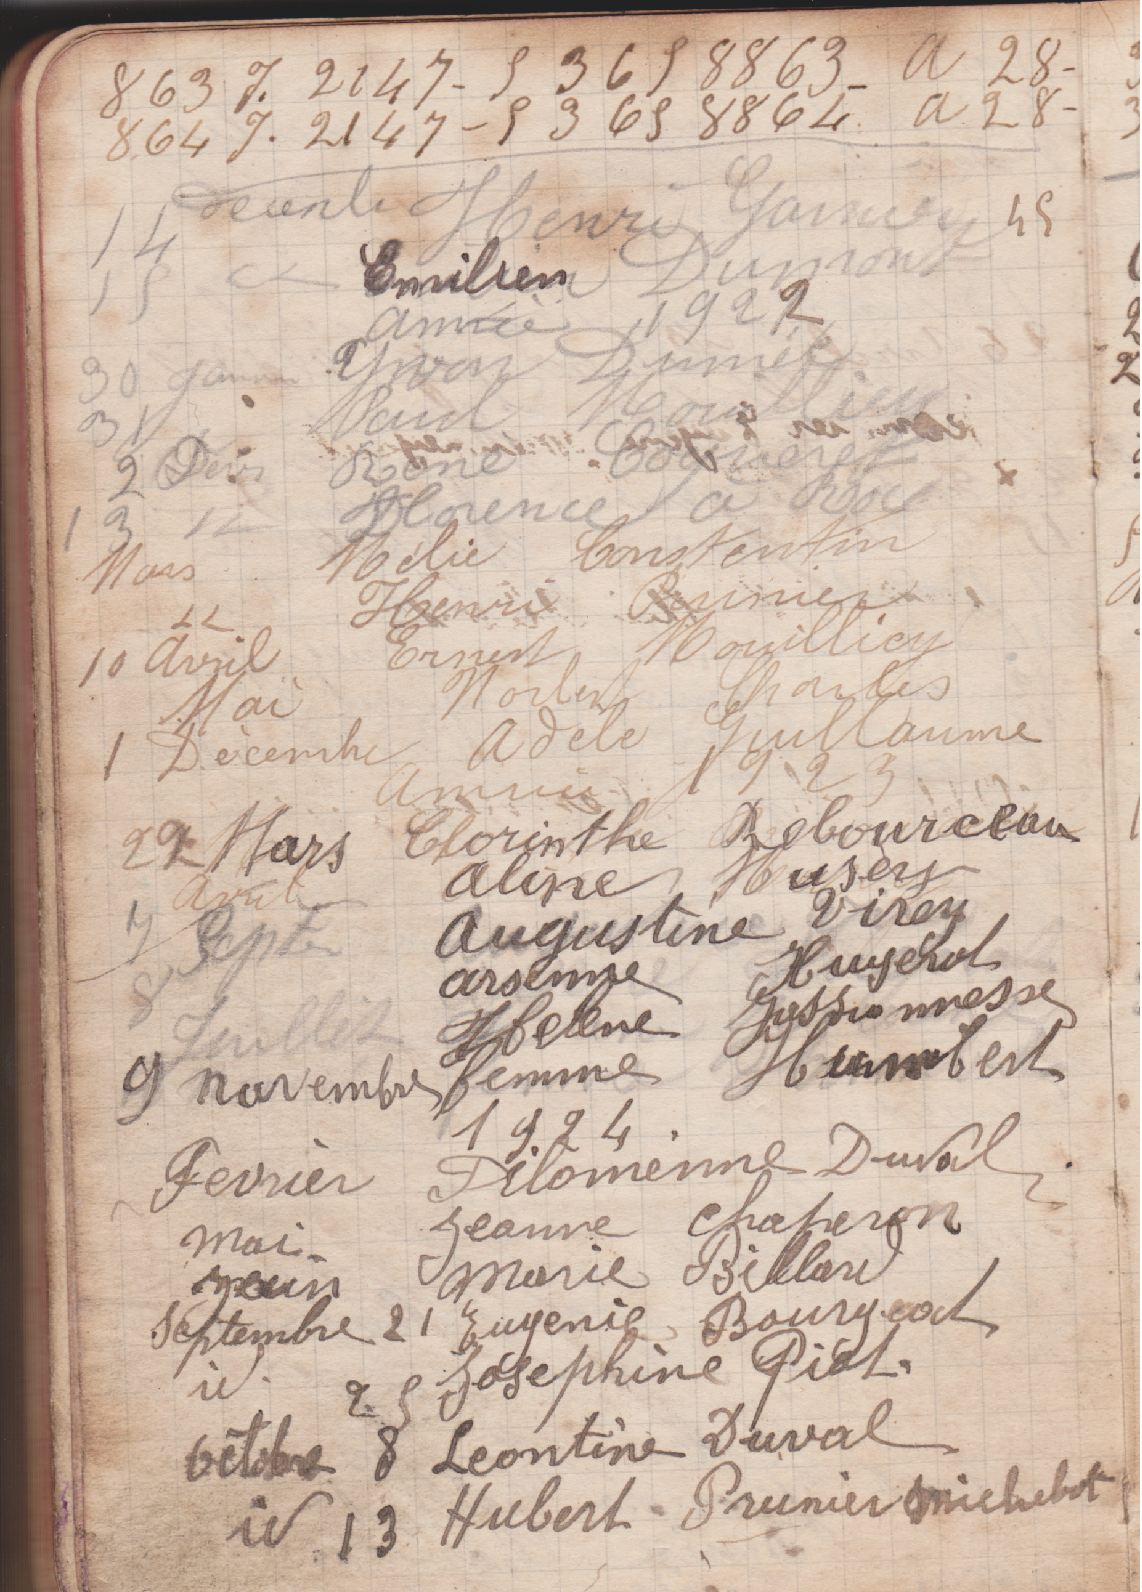 863 7. 2147-5 365 8863- a 28-
864 7. 2147-5 365 8864 a 28-
14 Henri 45
15 Emilien Dumont
année 1922
30 Yvon Dumée
31 Paul Mouillicy
2 René Coqueret
13 Florence
Mars Mélie Constentin
Henri Prunier
10 Avril Ernest Mouillicy
Mai Norbert Charles
1 Décembre Adèle Guillaume
année 1923
22 Mars Clorinthe Rebourceau
Avril Aline Musery
7 Septe Augustine Virey
8 arsenne Hugérot
Juillet Helene Jossionnesse
9 novembre femme Humbert
1924
Fevrier Filomenne Duval
Mai Jeanne Chaperon
Juin Marie Billard
Septembre 21 Eugenie Bourgeot
id. 25 Joséphine Piot.
octobre 8 Leontine Duval
id 13 Hubert Prunier michebot